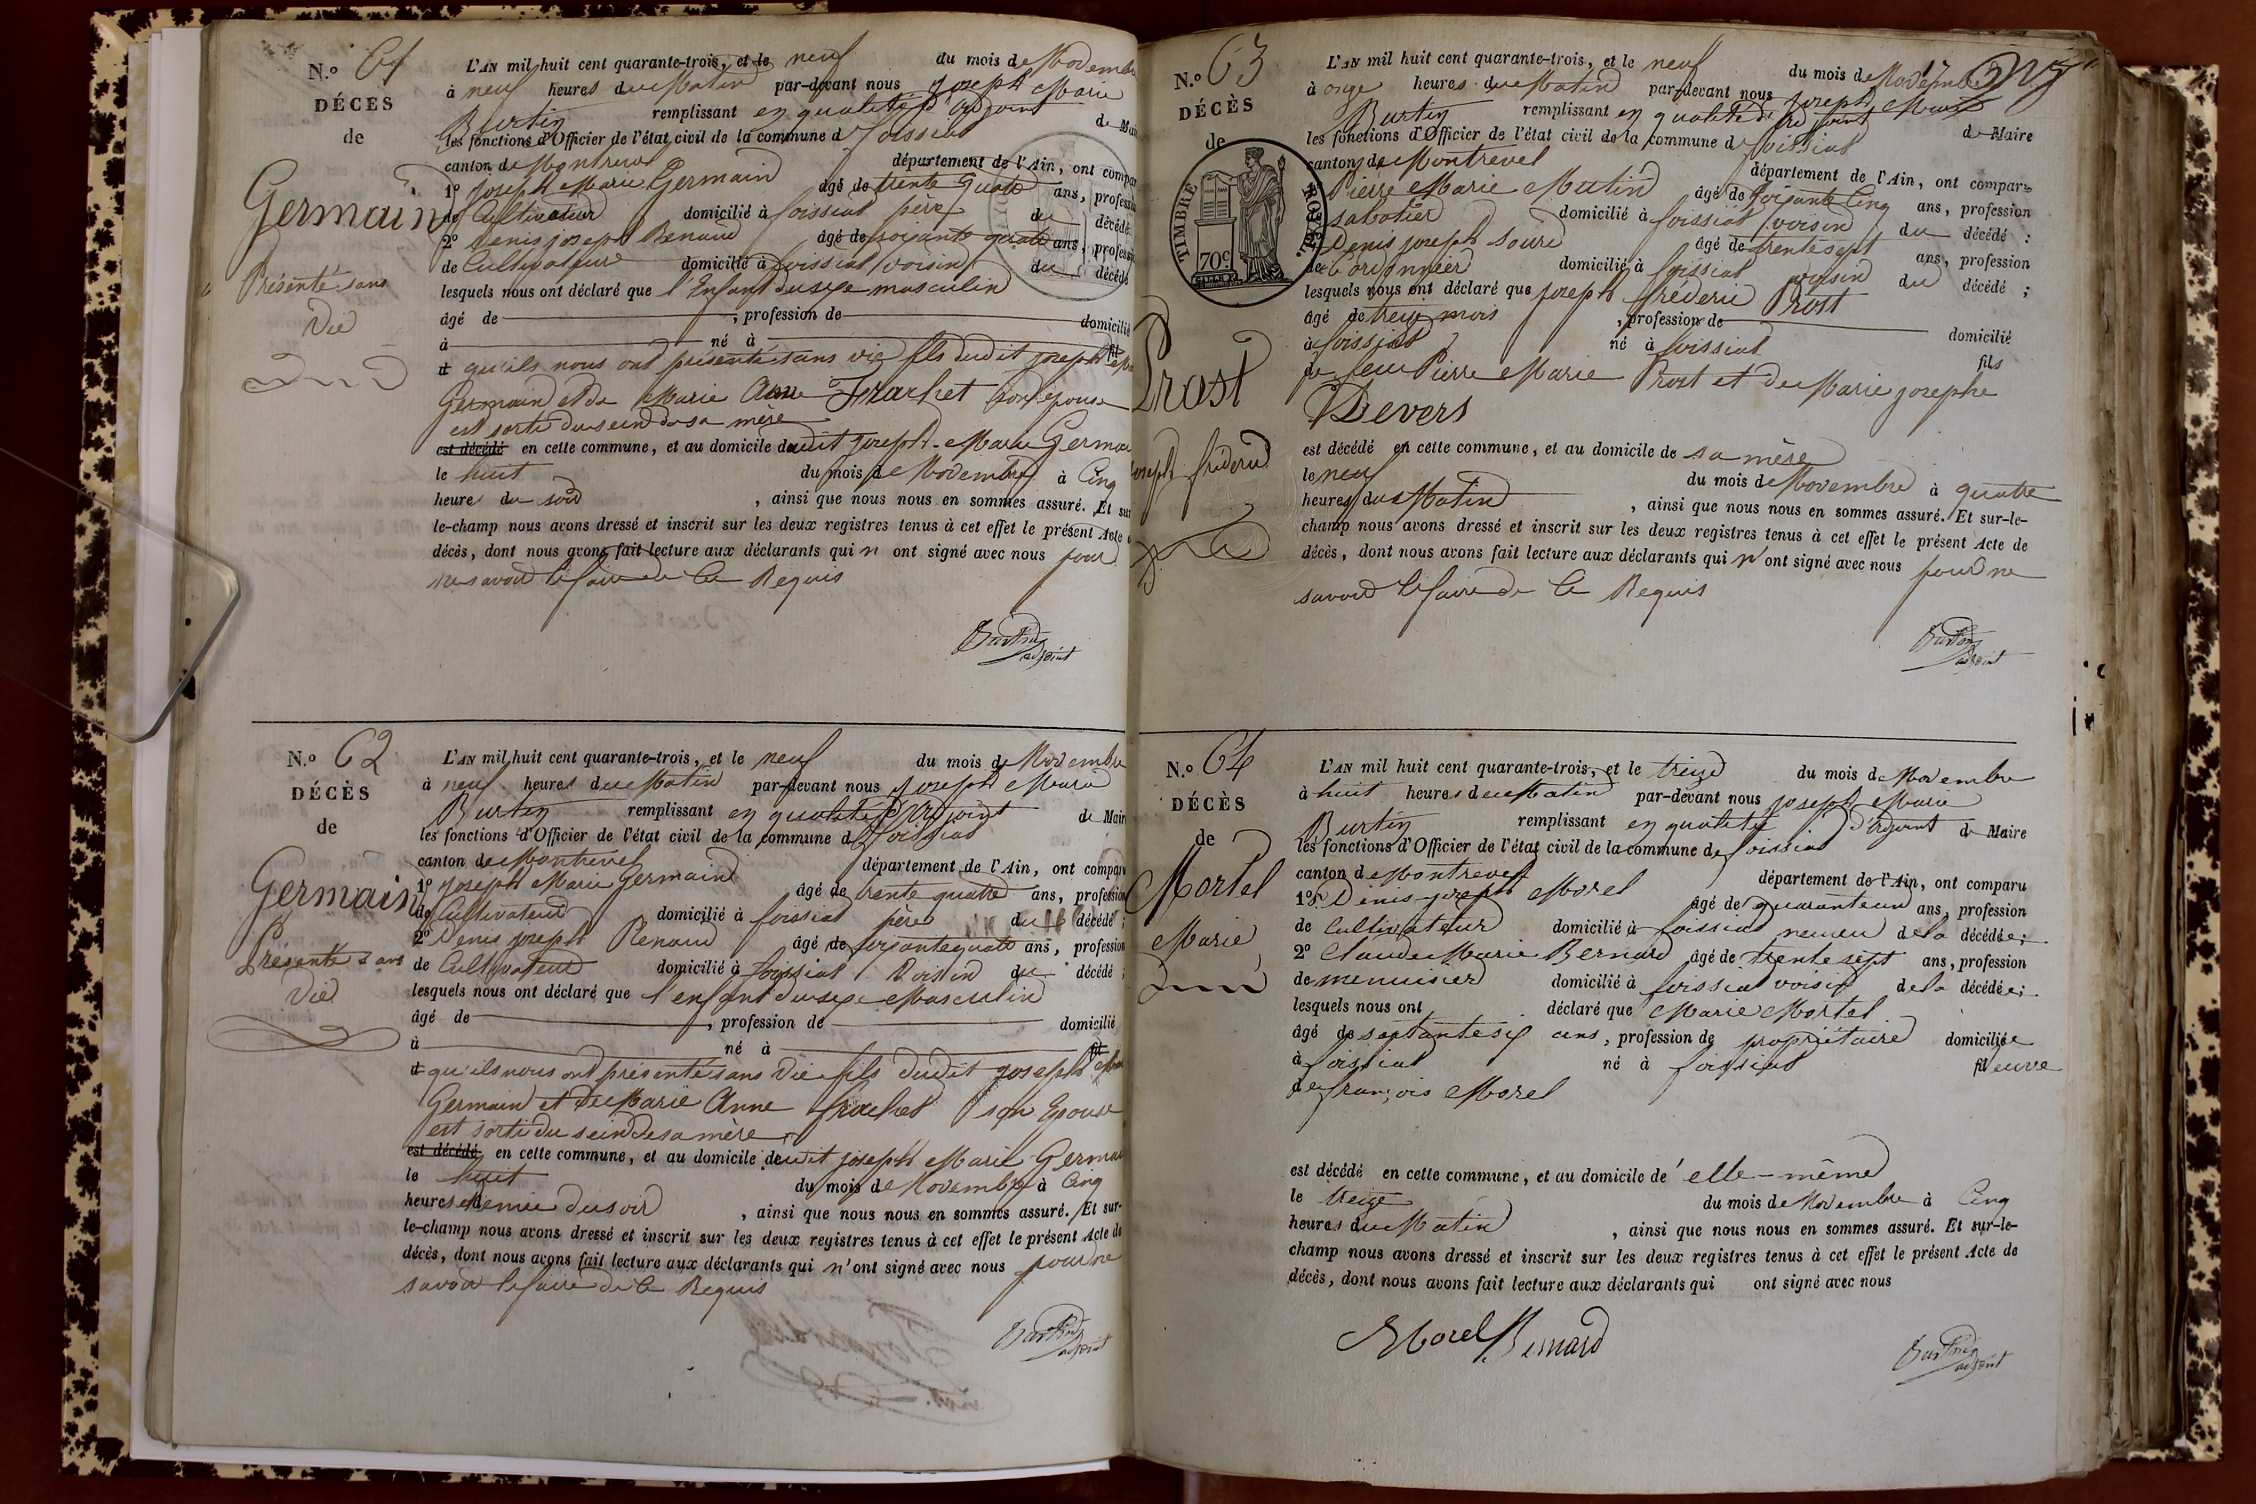 N.o 61
DÉCES
de
Germain
Présenté sans
Vie
L'AN mil huit cent quarante-trois, et le neuf du mois de Novembre
à neuf heures du Matin par-devant nous Joseph Marie
Burtin remplissant en qualité d'adjoint de Maire
les fonctions d'Officier de l'état civil de la commune de foissiat
canton de Montrevel département de l'Ain, ont compar
1o Joseph Marie Germain âgé de trente quatre ans, profession
de Cultivateur domicilié à foissiat père du décédé
2o Denis joseph Renaud âgé de soixante quatre ans, profession
de Cultivateur domicilié à foissiat voisin du décédé
lesquels nous ont déclaré que l'Enfant du sexe masculin
âgé de , profession de domicilié
à né à fil
et qu'ils nous ont présenté sans vie fils dudit joseph Marie
Germain et de Marie Anne Frachet son épouse
est sorti du sein de sa mère
est décédé en cette commune, et au domicile dudit joseph Marie Germain
le huit du mois de Novembre à Cinq
heures du soir , ainsi que nous nous en sommes assuré. Et sur
le-champ nous avons dressé et inscrit sur les deux registres tenus à cet effet le présent Acte
décès, dont nous avons fait lecture aux déclarants qui n'ont signé avec nous pour
ne savoir le faire de Ce Requis
Burtin
adjoint
N.o 62
DÉCÈS
de
Germain
Présenté sans
Vie
L'AN mil huit cent quarante-trois, et le neuf du mois de Novembre
à neuf heures du Matin par-devant nous Joseph Marie
Burtin remplissant en qualité d'Adjoint de Maire
les fonctions d'Officier de l'état civil de la commune de foissiat
canton de Montrevel département de l'Ain, ont comparu
1o Joseph Marie Germain âgé de trente quatre ans, profession
de Cultivateur domicilié à foissiat père du décédé ;
2o Denis joseph Renaud âgé de soixante quatre ans, profession
de Cultivateur domicilié à foissiat Voisin du décédé ;
lesquels nous ont déclaré que l'enfant du sexe Masculin
âgé de , profession de domicilié
à né à fil
et qu'ils nous ont présenté sans Vie fils dudit joseph Marie
Germain et de Marie Anne frachet son Epouse
est sorti du sein de sa mère
est décédé en cette commune, et au domicile dudit joseph Marie Germain
le huit du mois de Novembre à Cinq
heures et demie du soir , ainsi que nous nous en sommes assuré. Et sur-
le-champ nous avons dressé et inscrit sur les deux registres tenus à cet effet le présent Acte de
décès, dont nous avons fait lecture aux déclarants qui n'ont signé avec nous pour ne
savoir le faire de Ce Requis
Burtin
adjoint
N.o 63
DÉCÈS
de
TIMBRE ROYAL
70c
Prost
joseph fréderic
17
L'AN mil huit cent quarante-trois, et le neuf du mois de Novembre
à onze heures du Matin par-devant nous Joseph Marie
Burtin remplissant en qualité d'adjoint de Maire
les fonctions d'Officier de l'état civil de la commune de foissiat
canton de Montrevel département de l'Ain, ont comparu
Pierre Marie Mutin âgé de soixante Cinq ans, profession
sabotier domicilié à foissiat voisin du décédé ;
Denis joseph âgé de trente sept ans, profession
de Cordonnier domicilié à foissiat voisin du décédé ;
lesquels nous ont déclaré que joseph fréderic Prost
âgé de treize mois , profession de domicilié
à foissiat né à foissiat fils
de feu Pierre Marie Prost et de Marie josephe
Devers
est décédé en cette commune, et au domicile de sa mère
le neuf du mois de Novembre à quatre
heures du Matin , ainsi que nous nous en sommes assuré. Et sur-le-
champ nous avons dressé et inscrit sur les deux registres tenus à cet effet le présent Acte de
décès, dont nous avons fait lecture aux déclarants qui n'ont signé avec nous pour ne
savoir le faire de Ce Requis
Burtin
adjoint
N.o 64
DÉCÈS
de
Mortel
Marie
L'AN mil huit cent quarante-trois, et le treize du mois de Novembre
à huit heures du Matin par-devant nous Joseph Marie
Burtin remplissant en qualité d'adjoint de Maire
les fonctions d'Officier de l'état civil de la commune de foissiat
canton de Montrevel département de l'Ain, ont comparu
1o Denis joseph Morel âgé de quarante un ans, profession
de Cultivateur domicilié à foissiat neveu de la décédée;
2o Claude Marie Bernard âgé de trente sept ans, profession
de menuisier domicilié à foissiat voisin de la décédée;
lesquels nous ont déclaré que Marie Mortel
âgé de septante six ans, profession de propriétaire domiciliée
à foissiat né à foissiat veuve
de françois Morel
est décédé en cette commune, et au domicile de elle-même
le treize du mois de Novembre à Cinq
heures du Matin , ainsi que nous nous en sommes assuré. Et sur-le-
champ nous avons dressé et inscrit sur les deux registres tenus à cet effet le présent Acte de
décès, dont nous avons fait lecture aux déclarants qui ont signé avec nous
Morel Bernard
Burtin
adjoint